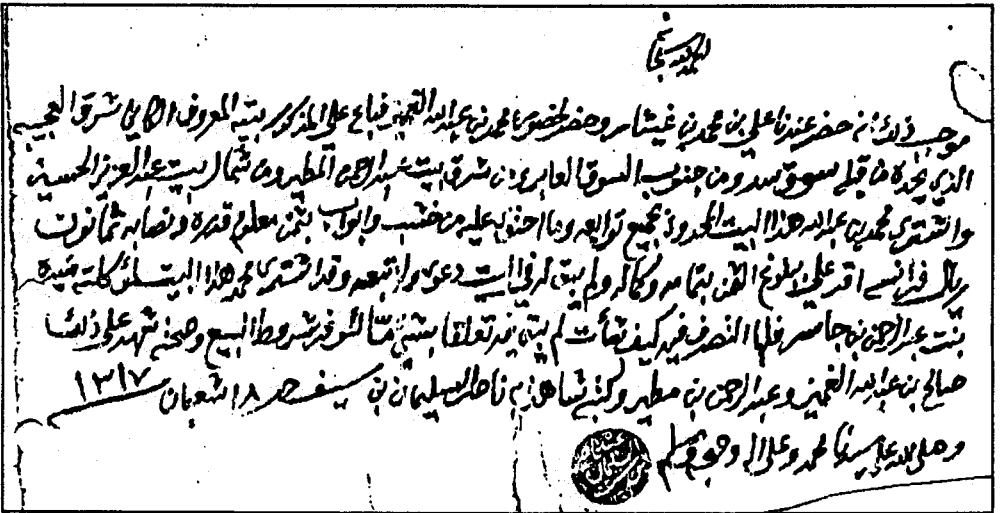 الحمد لله سبحانه
موجب ذلك أنه حضر عندنا علي بن محمد بن غيثار وحضر لحضوره محمد بن عبدالله القميز فباع علي المذكور بيته المعروف الكاين شرق العجيبه
الذي يحده من قبله سوق سدرو ومن جنوب السوق العابر ومن شرق بيت عبدالرحمن المطير ومن شمال بيت عبدالعزيز الحسيني
واشترى محمد بن عبدالله هذا البيت المحدود بجميع توابعه وما احتوى عليه من خشب وابواب بثمن معلوم قدره ونصابه ثمانون
ريال فرانسه اقر علي ببلوغ الثمن بتمامه وكماله ولم يبق له في البيت دعوى ولا تبعه وقد اشترى محمد هذا البيت لموكلته منيره
بنت عبدالرحمن بن جاسر فلها التصرف فيه كيف شأت لم يبق فيه تعلقا بشيء مّا لتوفر شروط البيع وصحته شهد على ذلك
صالح بن عبدالله القميز وعبدالرحمن بن مطير وكتبه شاهدا به ناصر السليمان بن سيف حرر ١٨ شعبان ١٣١٧
وصلى الله على سيدنا محمد وعلى اله وصحبه وسلم